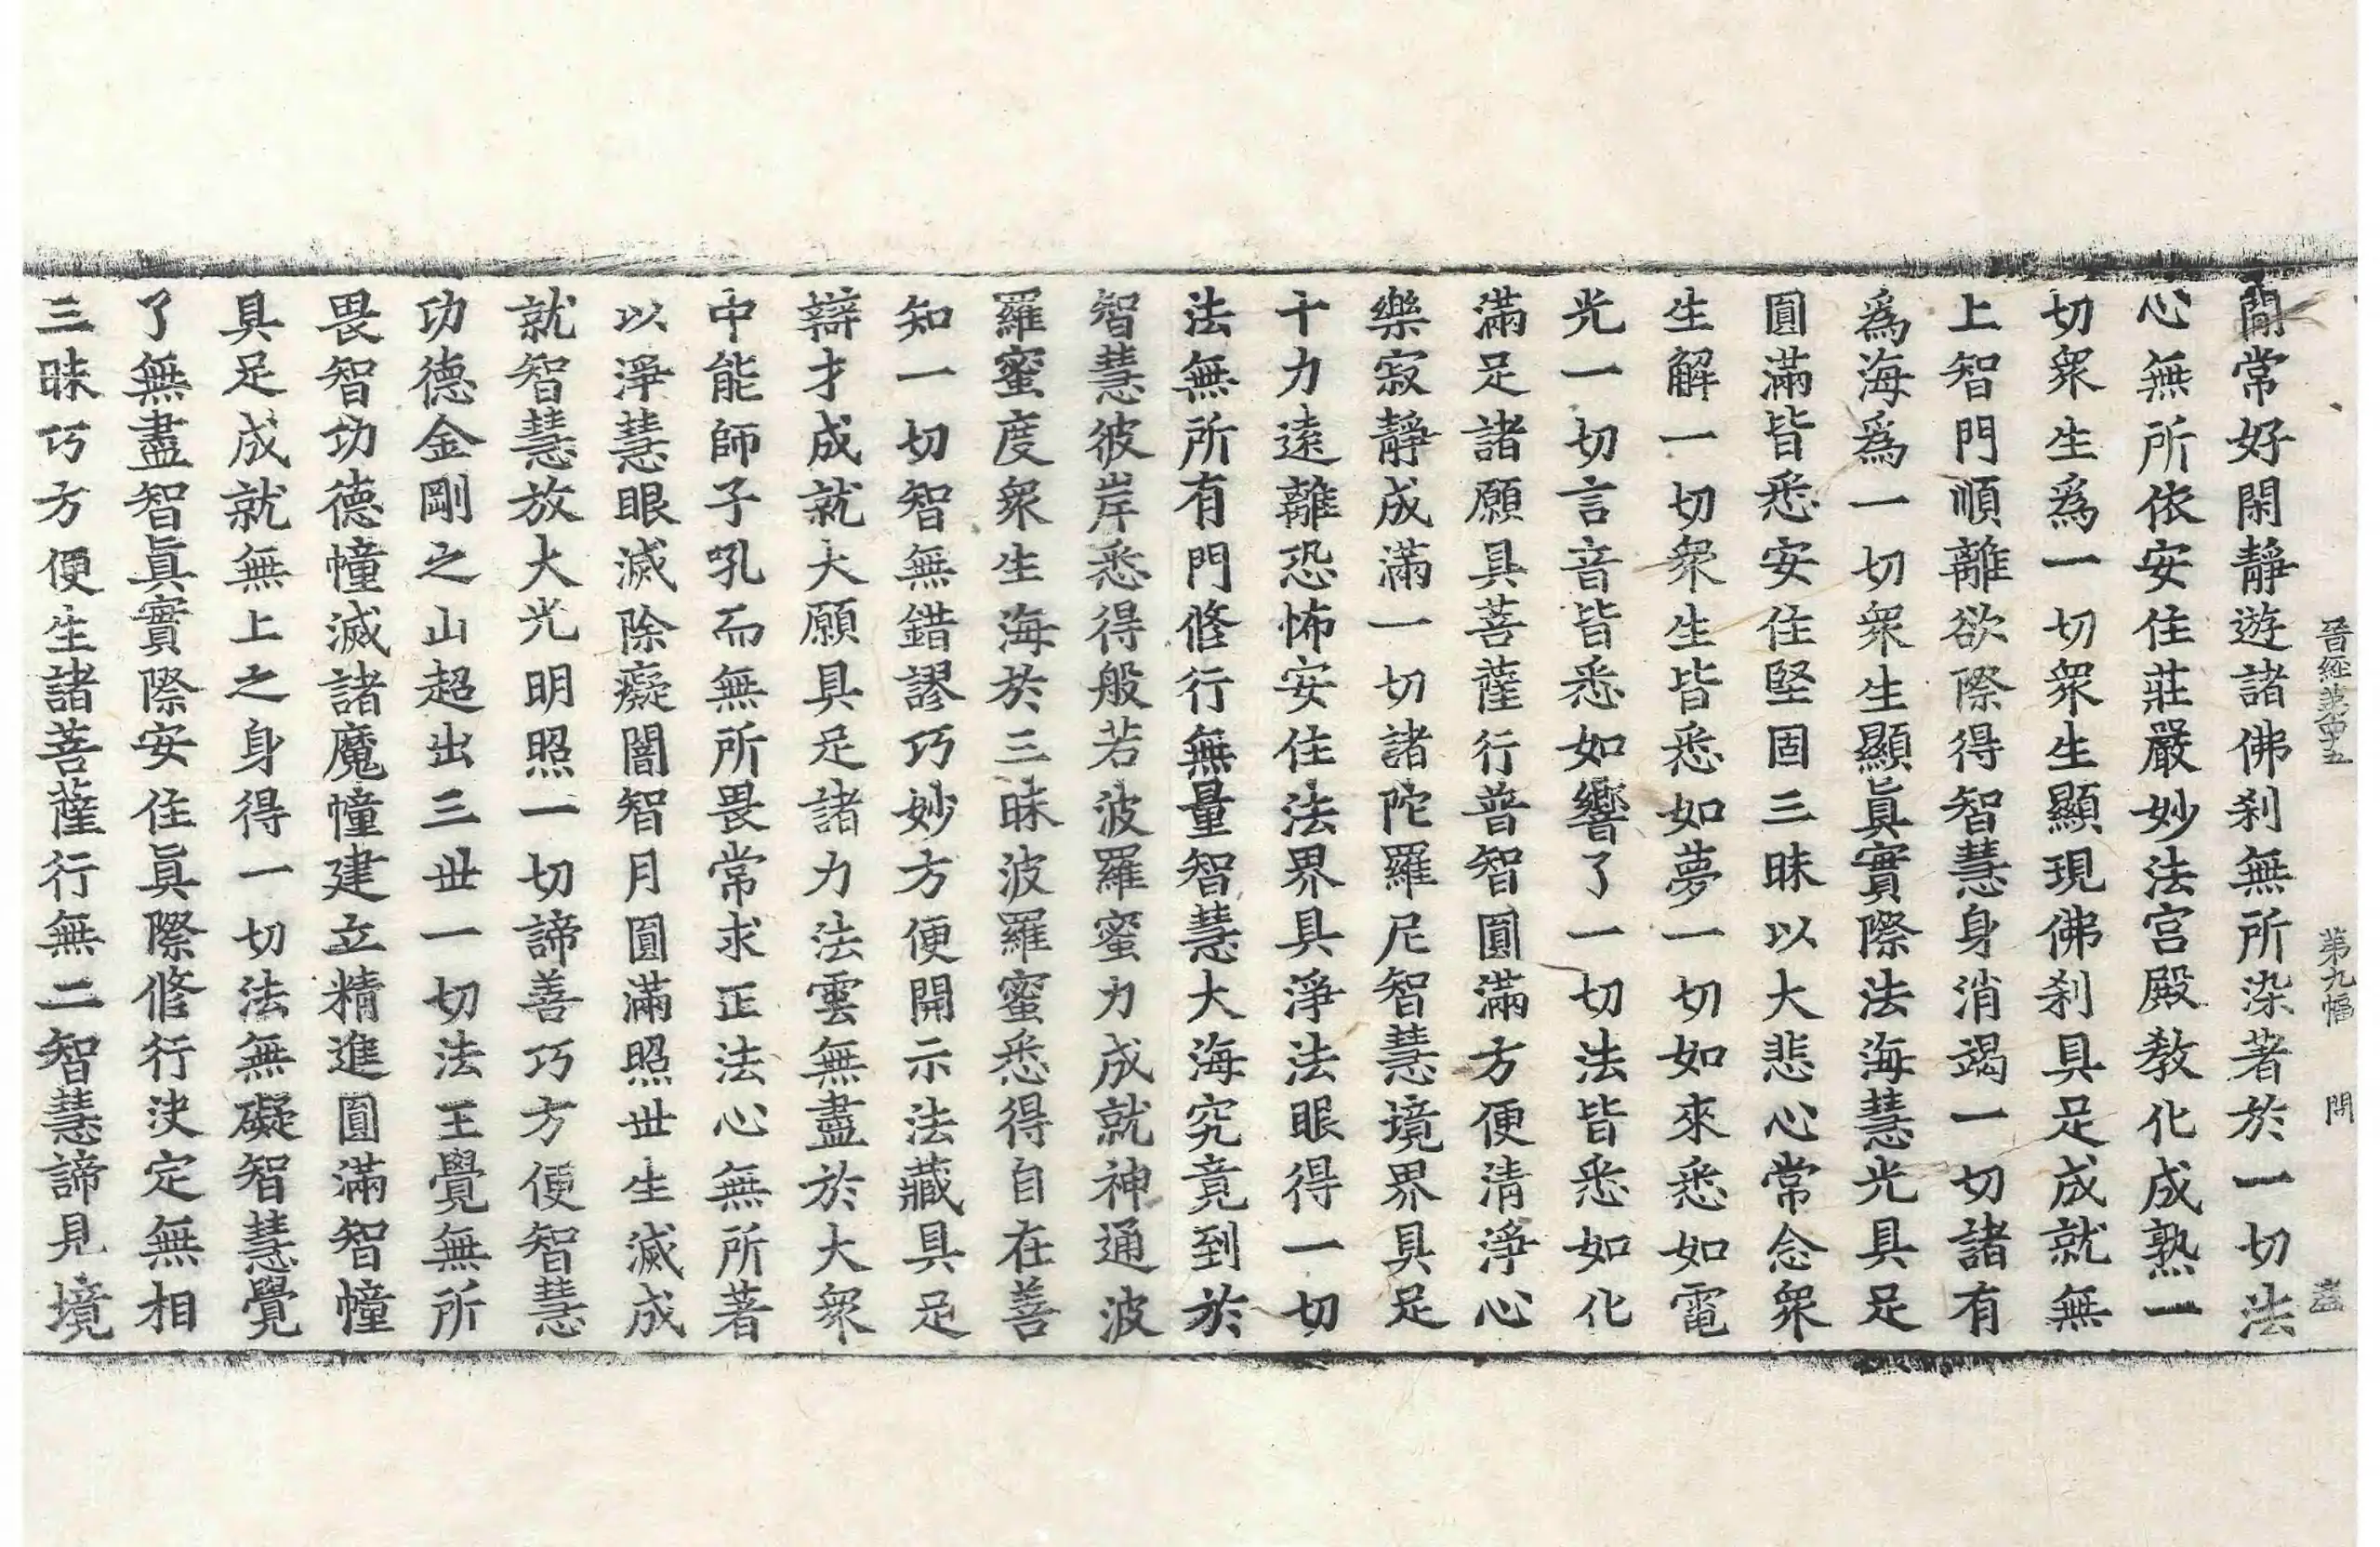 晉經第四十五　第九幅　問　盡
閒常好閑靜遊諸佛刹無所染著於一切法
心無所依安住莊嚴妙法宮殿教化成熟一
切衆生爲一切衆生顯現佛刹具足成就無
上智門順離欲際得智慧身消竭一切諸有
爲海爲一切衆生顯眞實際法海慧光具足
圓滿皆悉安住堅固三昧以大悲心常念衆
生解一切衆生皆悉如夢一切如來悉如電
光一切言音皆悉如響了一切法皆悉如化
滿足諸願具菩薩行普智圓滿方便清淨心
樂寂靜成滿一切諸陀羅尼智慧境界具足
十力遠離恐怖安住法界具淨法眼得一切
法無所有門修行無量智慧大海究竟到於
智慧彼岸悉得般若波羅蜜力成就神通波
羅蜜度衆生海於三昧波羅蜜悉得自在善
知一切智無錯謬巧妙方便開示法藏具足
辯才成就大願具足諸力法雲無盡於大衆
中能師子吼而無所畏常求正法心無所著
以淨慧眼滅除癡闇智月圓滿照世生滅成
就智慧放大光明照一切諦善巧方便智慧
功德金剛之山超出三世一切法王覺無所
畏智功德幢滅諸魔幢建立精進圓滿智幢
具足成就無上之身得一切法無礙智慧覺
了無盡智眞實際安住眞際修行決定無相
三昧巧方便生諸菩薩行無二智慧諦見境